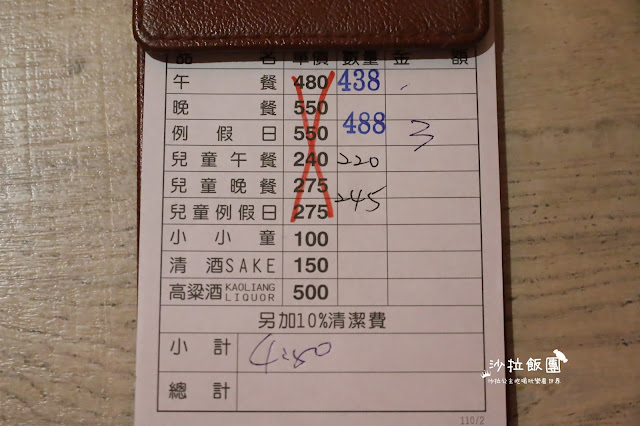 品 名 單價 數量 金 額
午 餐 480 438
晚 餐 550
488
例 假 日 550 3
兒童午餐 240 220
兒童晚餐 275
245
兒童例假日 275
小 小 童 100
清 酒 SAKE 150
高粱酒 KAOLIANG LIQUOR 500
另加10%清潔費
小 計
總 計
110/2
沙拉飯團
沙拉公主吃喝玩樂看世界